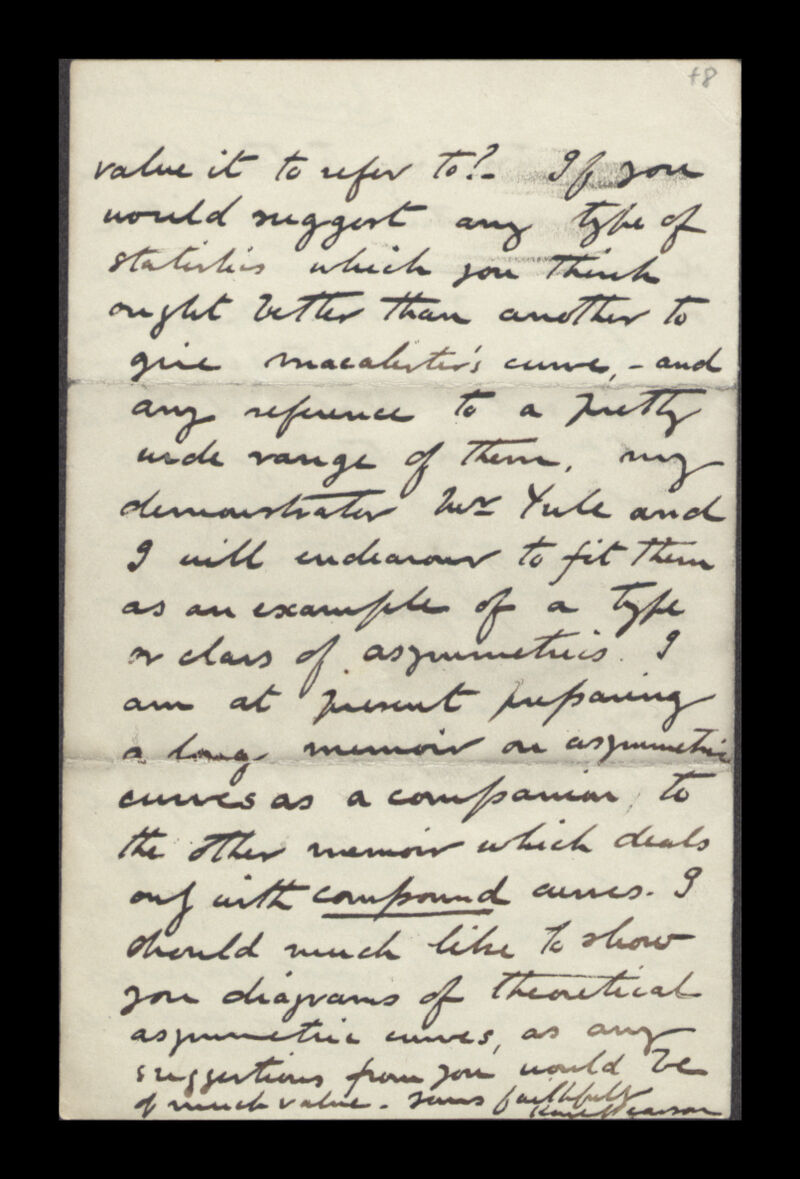 48
value it to refer to?- If you
would suggest any type of
statistics which you think
ought better than another to
give Macalister's curve, - and
any reference to a pretty
wide range of them, my
demonstrator Mr Yule and
I will endeavour to fit them
as an example of a type
or class of asymmetries. I
am at present preparing
a long memoir on asymmetric
curves as a companion to
the other memoir which deals
only with compound curves. I
should much like to show
you diagrams of theoretical
asymmetric curves, as any
suggestions from you would be
of much value. Yours faithfully
Karl Pearson